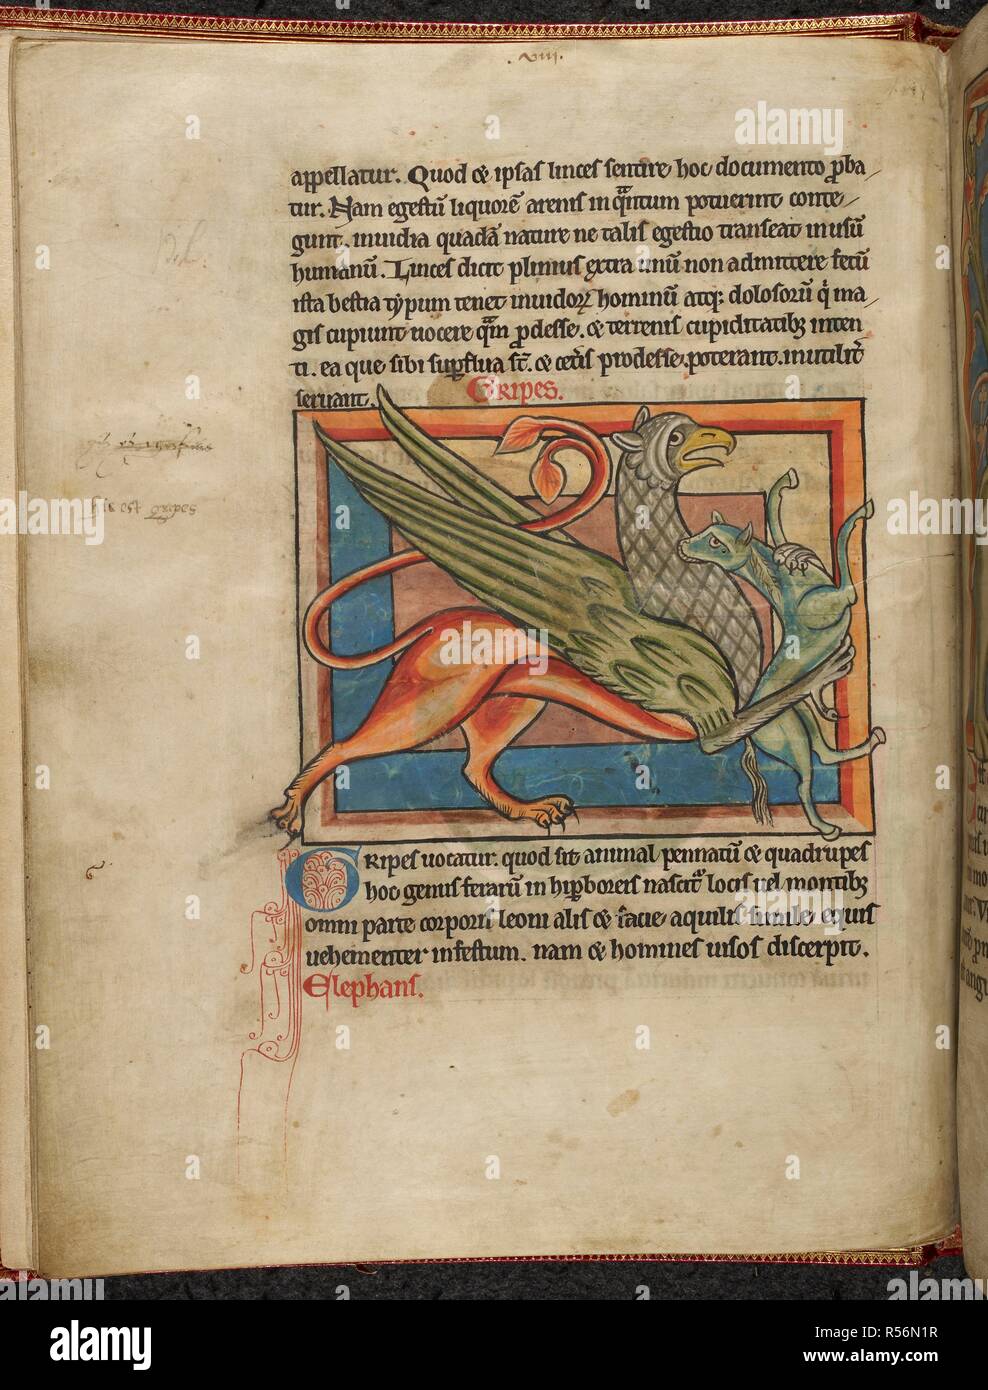 .viii.
appellatur. Quod & ipsas linces sentire hoc documento ꝓba
tur. Nam egestū liquorē arenis in qͣntum potuerint conte
gunt. inuidia quadā nature ne talis egestio transeat in usū
humanū. Linces dicit plinius extra unū non admittere fetū
ista bestia typum tenet inuidoꝝ hominū atq; dolosorū q̇ ma
gis cupiunt nocere qͣm ꝓdesse. & terrenis cupiditatibꝫ inten
ti. ea que sibi suꝑflua st̄. & cet̉is prodesse poterant. inutilit̉
seruant.
Gripes.
hic est gripes
Gripes uocatur. quod sit animal pennatū & quadrupes
hoc genus ferarū in hiꝑboreis nascit᷑ locis uel montibꝫ
omni parte corporis leoni alis & facie aquilis simile equis
uehementer infestum. nam & homines uisos discerpit.
Elephans.
alamy
Image ID: R56N1R
www.alamy.com